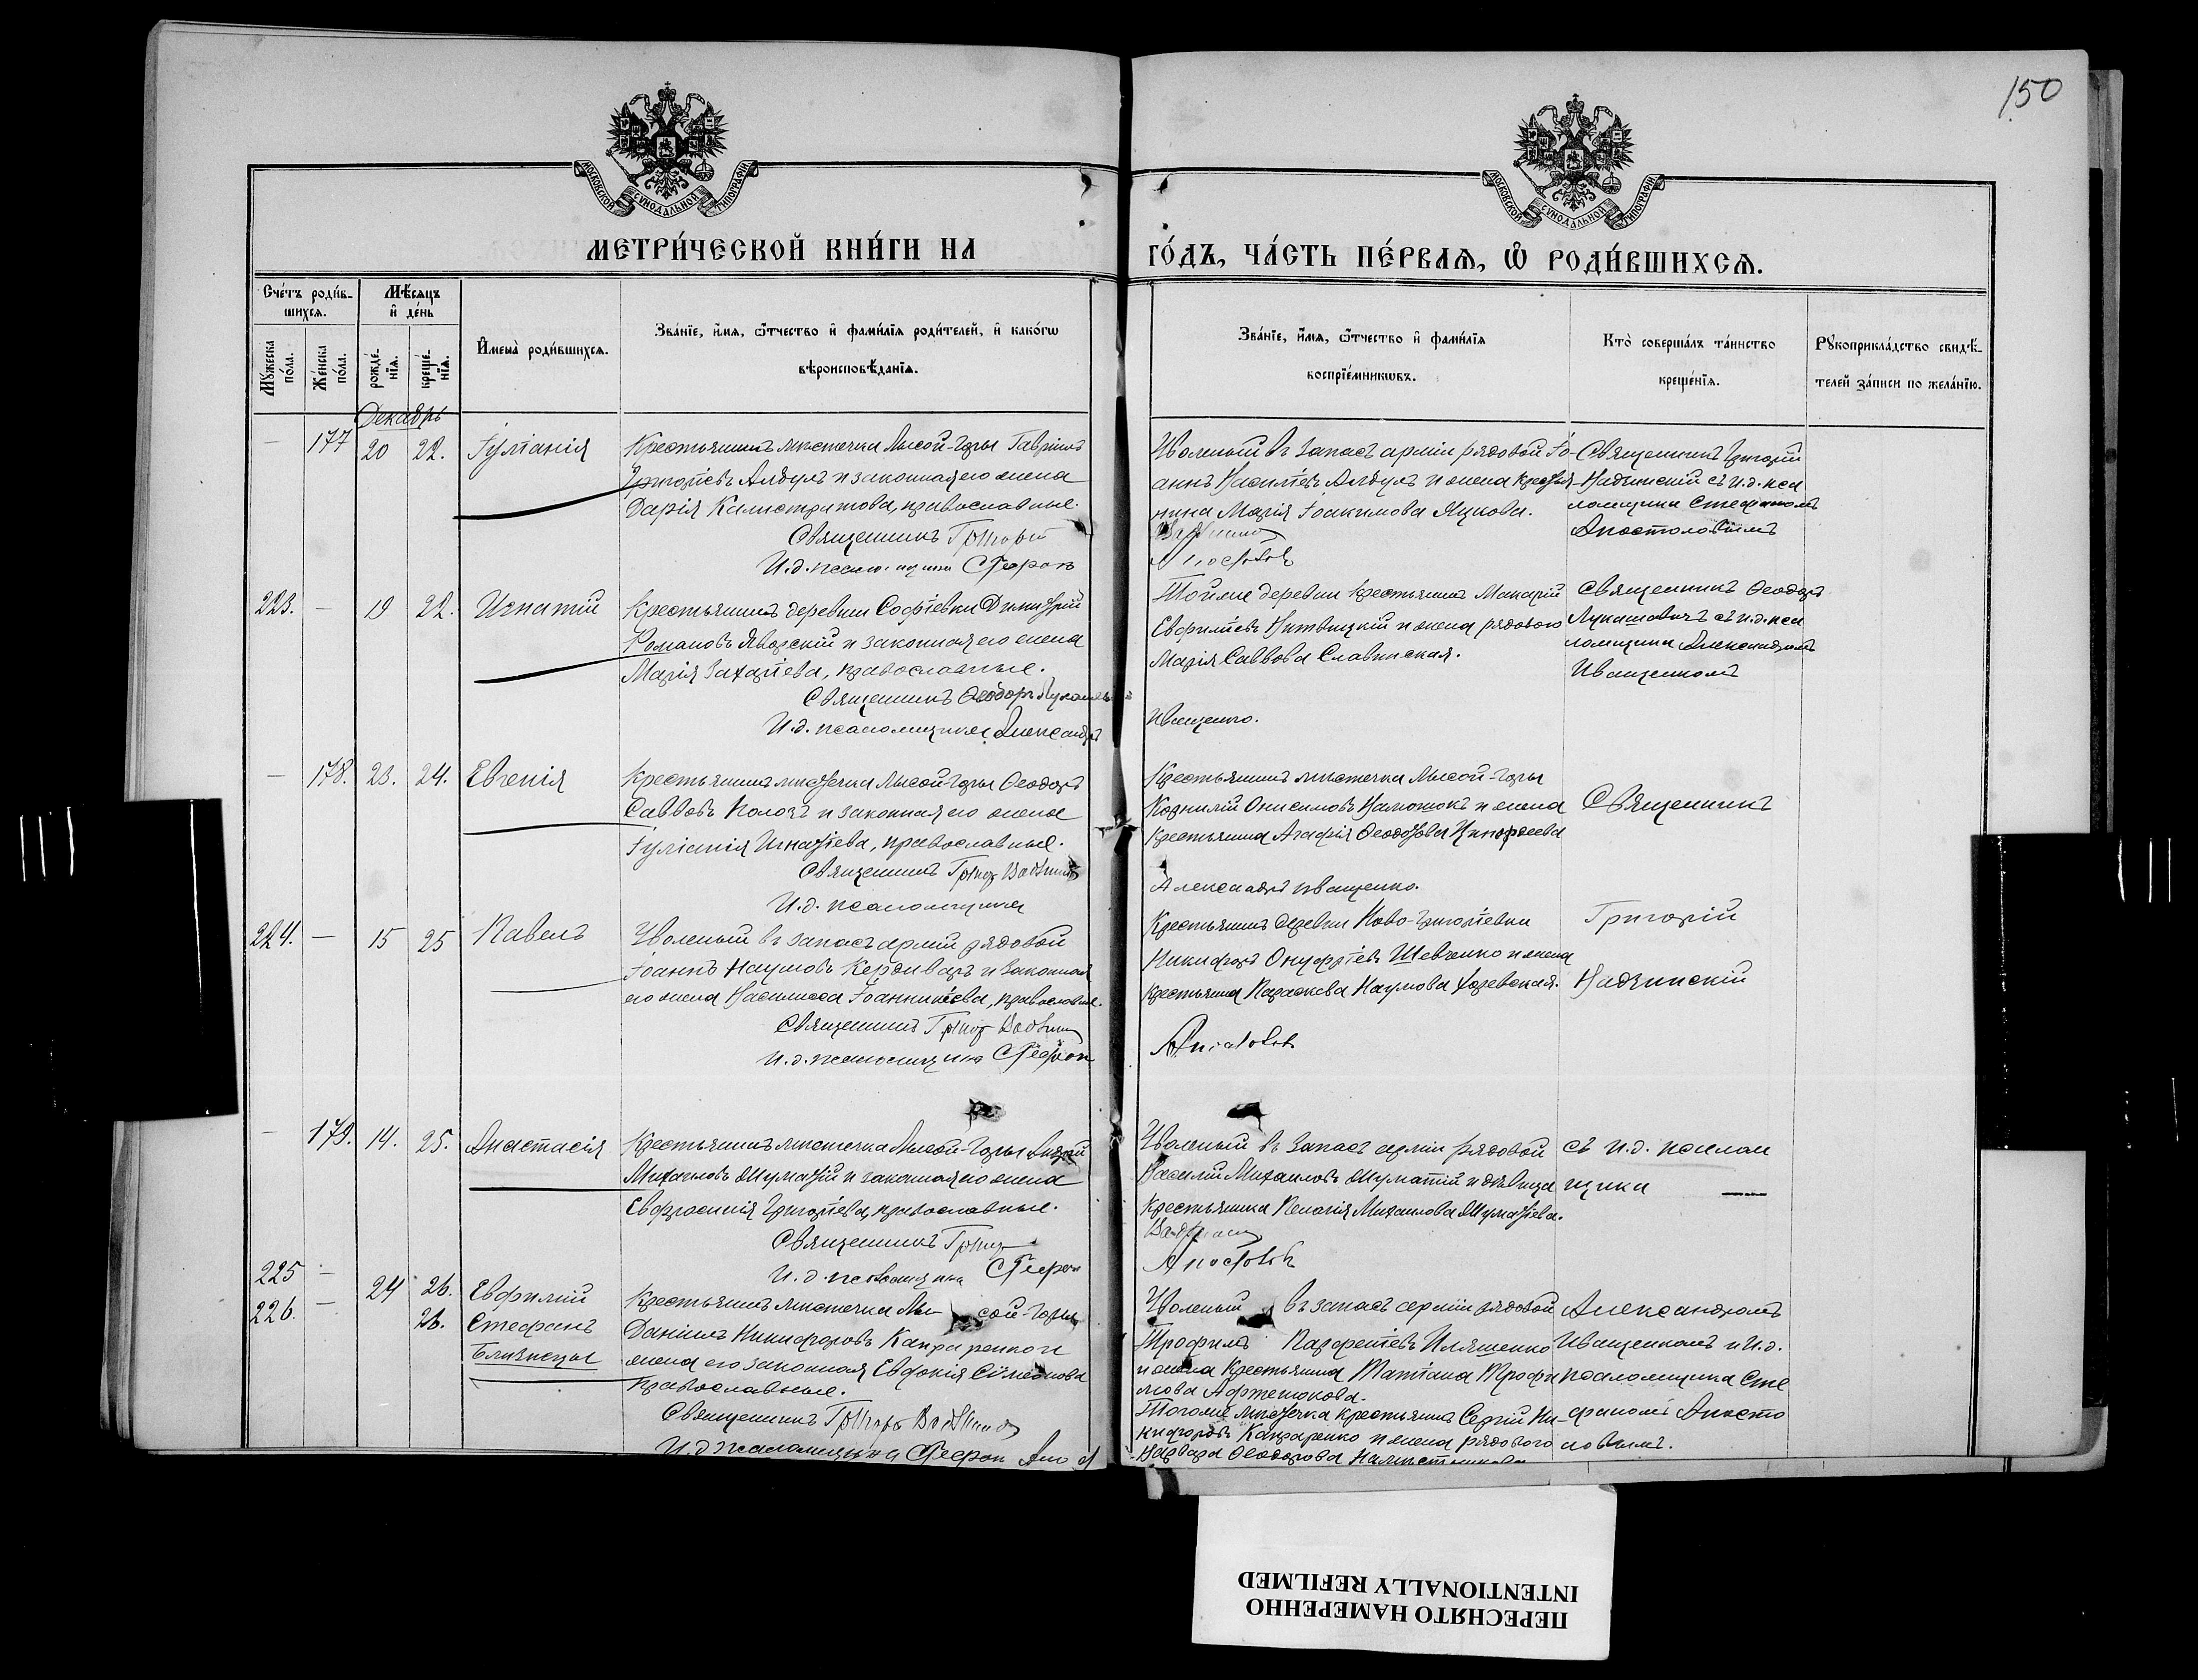 150
МОСКОВСКОЙ СѴНОДАЛЬНОЙ ТИПОГРАФІИ
МОСКОВСКОЙ СѴНОДАЛЬНОЙ ТИПОГРАФІИ
МЕТРИ́ЧЕСКОЙ КНИ́ГИ НА
ГО́ДЪ, ЧА́СТЬ ПЕ́РВАѦ, Ѡ҆ РОДИ́ВШИХСѦ.
Сче́тъ роди́в-
шихсѧ.
Мѣ́сѧцъ
и҆ де́нь
Мꙋ́жеска
по́ла.
Же́нска
по́ла.
рожде́-
нїѧ.
креще́-
нїѧ.
И҆мена̀ роди́вшихсѧ.
Зва́нїе, и҆́мѧ, ѻ҆́тчество и҆ фами́лїѧ роди́телей, и҆ како́гѡ
вѣроисповѣ́данїѧ.
Зва́нїе, и҆́мѧ, ѻ҆́тчество и҆ фами́лїѧ
воспрїе́мникѡвъ.
Кто̀ соверша́лъ та́инство
креще́нїѧ.
Рꙋкоприкла́дство свидѣ́-
телей за́писи по жела́нїю.
Декабрь
— 177 20 22. Іуліанія
Крестьянинъ мѣстечка Лысой-Горы Гавріилъ
Григоріевъ Алдулъ и законная его жена
Дарія Калистратова, православные.
Священникъ Григорій
И.д. псаломщика Стефанъ
Уволеный въ запасъ арміи рядовой Іо-
аннъ Василіевъ Алдулъ и жена крестья-
нина Марія Іоакимова Яцкова.
Священникъ Григорій
Надзинскій съ и.д. пса
ломщика Стефаномъ
Апостоловымъ
223. — 19 22. Игнатій
Крестьянинъ деревни Софіевки Димитрій
Романовъ Яворскій и законная его жена
Марія Захаріева, православные.
Священникъ Ѳеодоръ
И.д. псаломщика Александръ
Тойже деревни крестьянинъ Макарій
Евфиміевъ и жена рядового
Марія Саввова Славинская.
Иващенко.
Священникъ Ѳеодоръ
Лукашевичъ съ и.д. пса
ломщика Александромъ
Иващенкомъ
— 178. 23. 24. Евгенія
Крестьянинъ мѣстечка Лысой-Горы Ѳеодоръ
Саввовъ Колозъ и законная его жена
Іуліанія Игнатіева, православные.
Священникъ
И.д. псаломщика
Крестьянинъ мѣстечка Лысой-Горы
Корнилій Онисимовъ и жена
крестьянина Агафія
Александръ Иващенко.
Священникъ
224. — 15 25 Павелъ
Уволеный въ запасъ арміи рядовой
Іоаннъ Наумовъ Кердиваръ и законная
его жена Василисса Іоанникіева, православные.
Священникъ
И.д. псаломщика Стефанъ
Крестьянинъ деревни Ново-Григоріевки
Никифоръ Онуфріевъ Шевченко и жена
крестьянина Параскева Наумова
Григорій
Надзинскій
— 179. 14. 25. Анастасія
Крестьянинъ мѣстечка Лысой-Горы Андрей
Михаиловъ Шуматій и законная его жена
Евфросинія Григоріева, православные.
Священникъ
И.д. псаломщика Стефанъ
Уволеный въ запасъ арміи рядовой
Василій Михаиловъ Шуматій и дѣвица
крестьянка Пелагія Михаилова Шуматіева.
съ и.д. псалом
щика —
225 — 24 26. Евфимій
226. — 26. Стефанъ
Близнецы
Крестьянинъ мѣстечка Лысой-Горы
Даніилъ Никифоровъ Кандаренко и
жена его законная Евдокія Сѵмеонова
православные.
Священникъ
И.д. псаломщика Стефанъ
Уволеный въ запасъ арміи рядовой
Трофимъ Парфеніевъ Иляшенко
и жена крестьянина Татіана Трофи
мова
Тогоже мѣстечка крестьянинъ Сергій Ни-
кифоровъ Кандаренко и жена рядового
Варвара Ѳеодорова
Александромъ
Иващенкомъ и и.д.
псаломщика Сте
фаномъ Апосто
ловымъ.
ПЕРЕСНЯТО НАМЕРЕННО
INTENTIONALLY REFILMED